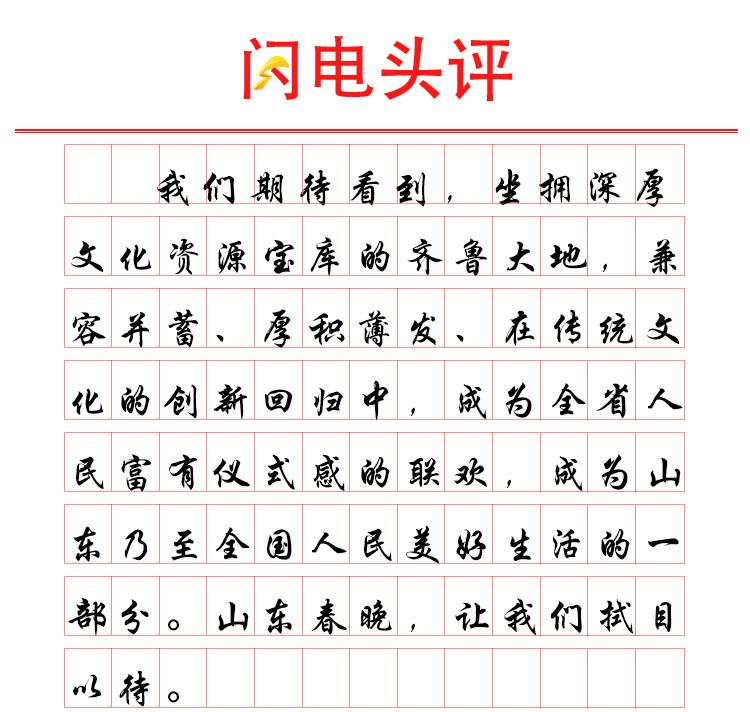 闪电头评
我们期待看到，坐拥深厚
文化资源宝库的齐鲁大地，兼
容并蓄、厚积薄发、在传统文
化的创新回归中，成为全省人
民富有仪式感的联欢，成为山
东乃至全国人民美好生活的一
部分。山东春晚，让我们拭目
以待。